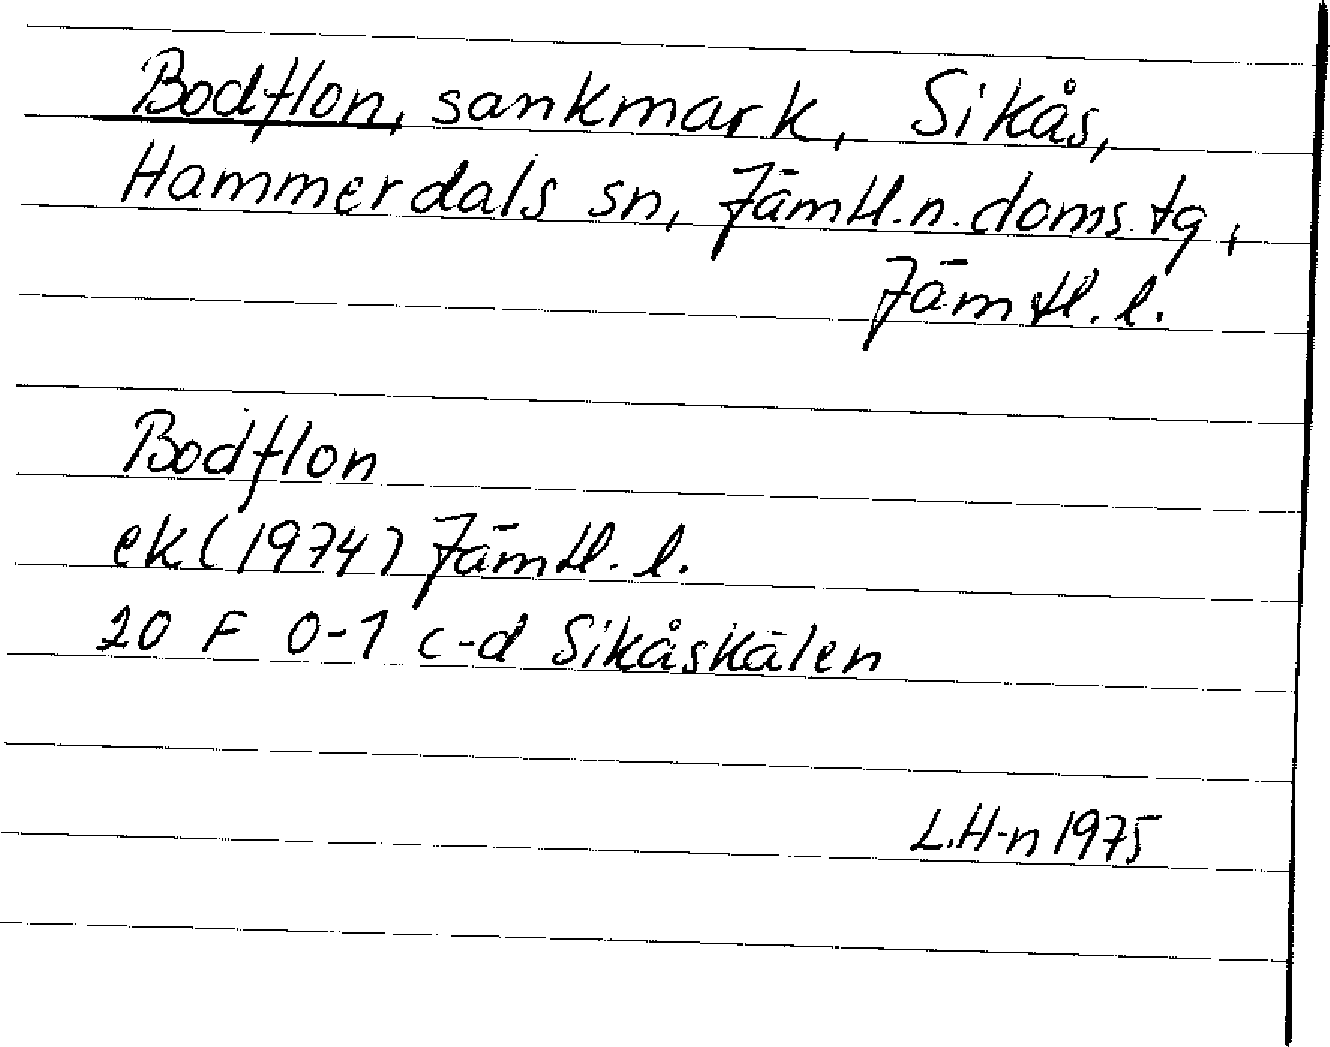 Bodflon, sankmark, Sikås,
Hammerdals sn, Jämtl.n.doms.tg,
Jämtl.l.
Bodflon
ek(1974) Jämtl.l.
20 F 0-1 c-d Sikåskälen
L.H-n 1975